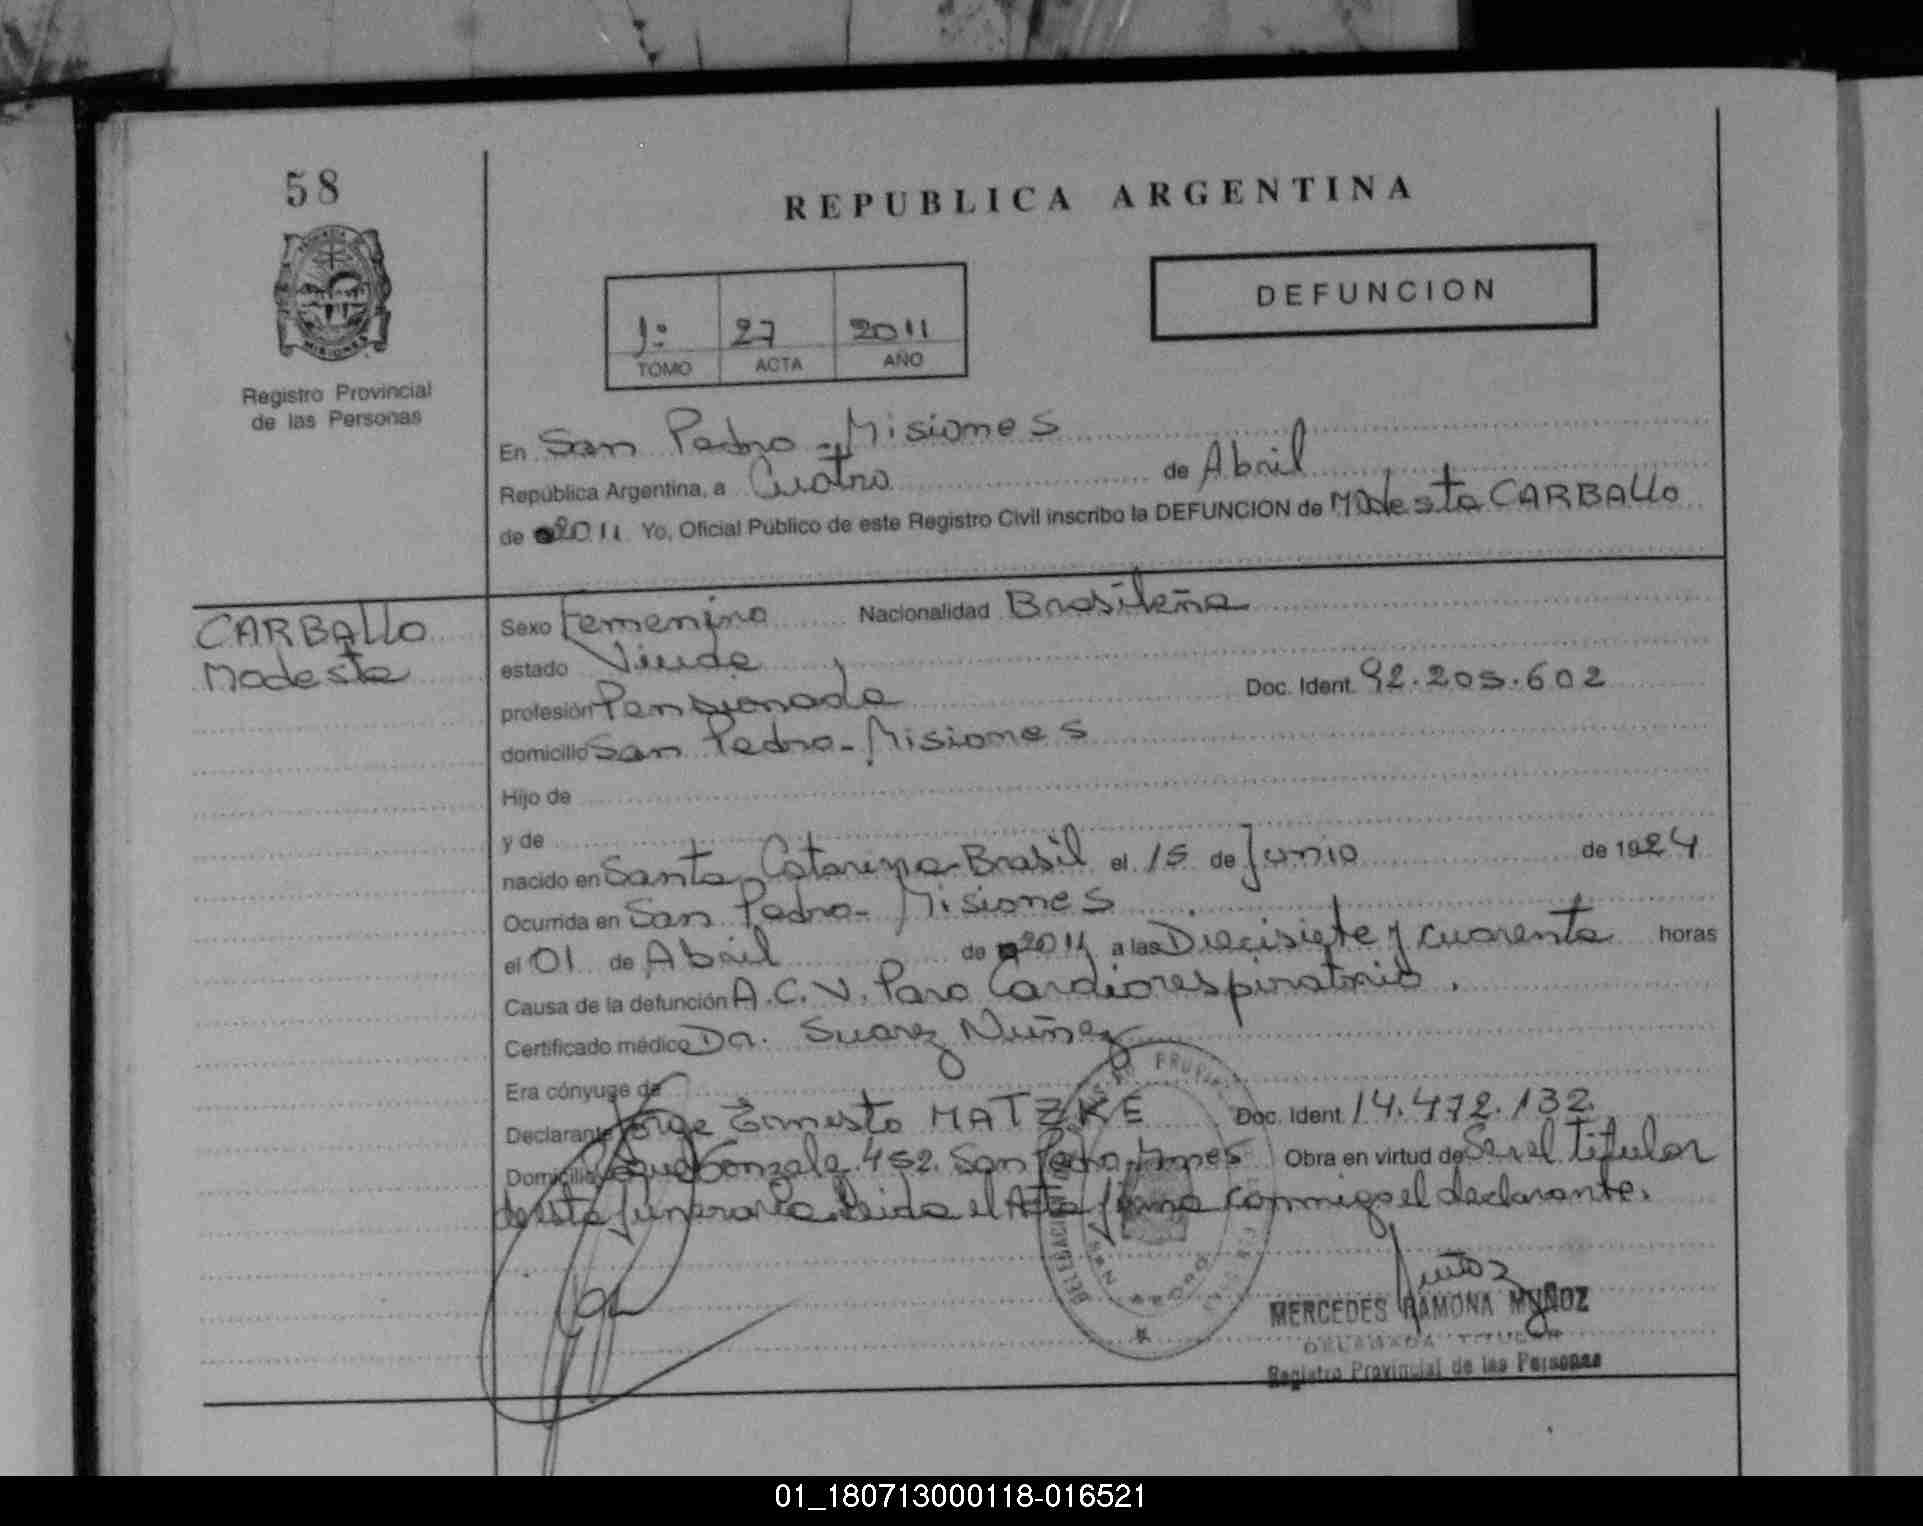 58
REPUBLICA ARGENTINA
MISIONES
Registro Provincial
de las Personas
1º 27 2011
TOMO ACTA AÑO
DEFUNCION
En San Pedro - Misiones
República Argentina, a Cuatro de Abril
de 2011 Yo, Oficial Público de este Registro Civil inscribo la DEFUNCION de Modesta CARBALLO
CARBALLO
Modesta
Sexo Femenino Nacionalidad Brasileña
estado Viuda
profesión Pensionada Doc. Ident. 92.205.602
domicilio San Pedro - Misiones
Hijo de
y de
nacido en Santa Catarina - Brasil el 15 de Junio de 1924
Ocurrida en San Pedro - Misiones
el 01 de Abril de 2011 a las Diecisiete y cuarenta horas
Causa de la defunción A.C.V. Paro Cardiorespiratorio.
Certificado médico Dr. Suarez Nuñez
Era cónyuge de
Declarante Jorge Ernesto MATZKE Doc. Ident. 14.472.132
Domicilio Gonzalez 452. San Pedro - Mnes Obra en virtud de Ser el titular
de esta funeraria. Leida el Acta firma conmigo el declarante.
MERCEDES RAMONA MUÑOZ
Registro Provincial de las Personas
01_180713000118-016521